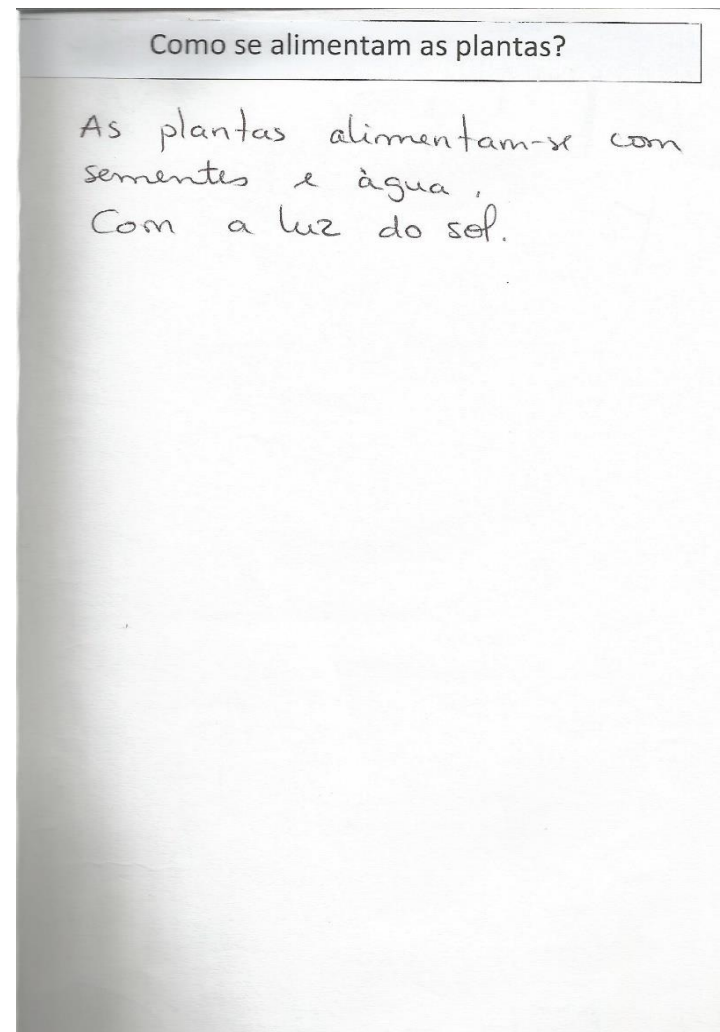 Como se alimentam as plantas?
As plantas alimentam-se com
sementes e àgua,
Com a luz do sol.